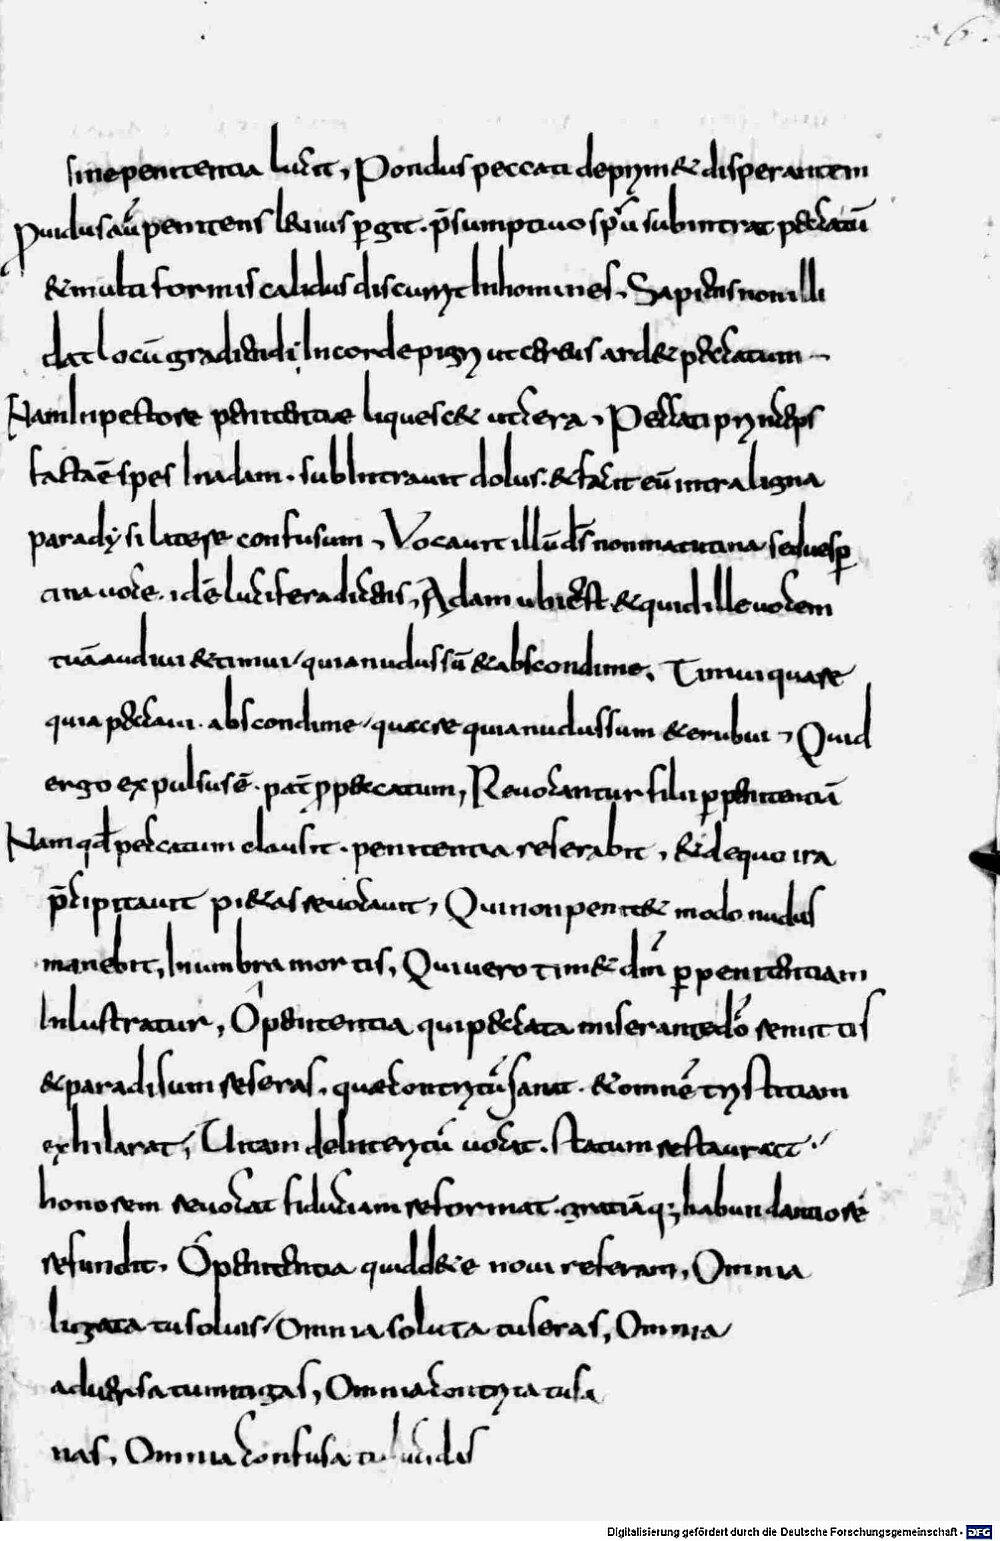 sine penitentia lucit, Pondus peccati deprimet disperantem
Prouidus aũ penitens leuius p̱git. p̄sumptiuo sp̄u subintrat peccatũ
& multi formis calidus discurrit In homines, Sapiens non illi
dat locũ gradiendi; In corde pigri ut cereus ardet peccatum
Nam In pectore penitentiae liquescet ut cera, Peccati princeps
facta ẽ spes In adam. subIntrauit dolus. & facit eũ intra ligna
paradysi latere confusum, Vocauit illũ ds̄ non matutina sed uesp̱
tina uoce. idẽ lucifera dicens, Adam ubi est & quid ille uocem
tuã audiui & timui, quia nudus sũ & abscondi me, Timui quare
quia peccaui. abscondi me, quare quia nudus sum & erubui, Quid
ergo expulsus ẽ. pat̄ p̱ peccatum, Reuocantur filii p̱ penitenciã
Nam qđ peccatum clausit. penitentia reserabit, & de quo ira
p̄cipitauit pietas reuocauit, Qui non penitet modo nudus
manebit, In umbra mortis, Qui uero timet dm̄ p̱ penitentiam
Inlustratur, O penitentia qui peccata miserante dõ remittis
& paradisum reseras, quae contritũ sanat. & omnẽ tristitiam
exhilarat, Uitam de Interitũ uocat. statum restaurat
honorem reuocat fiduciam reformat. gratiãq; habundantiorẽ
refundit, O penitentia quid de te noui referam, Omnia
ligata tu soluis, Omnia soluta tu seras, Omnia
aduersa tu mitigas, Omnia contrita tu sa
nas, Omnia confusa tu lucidas